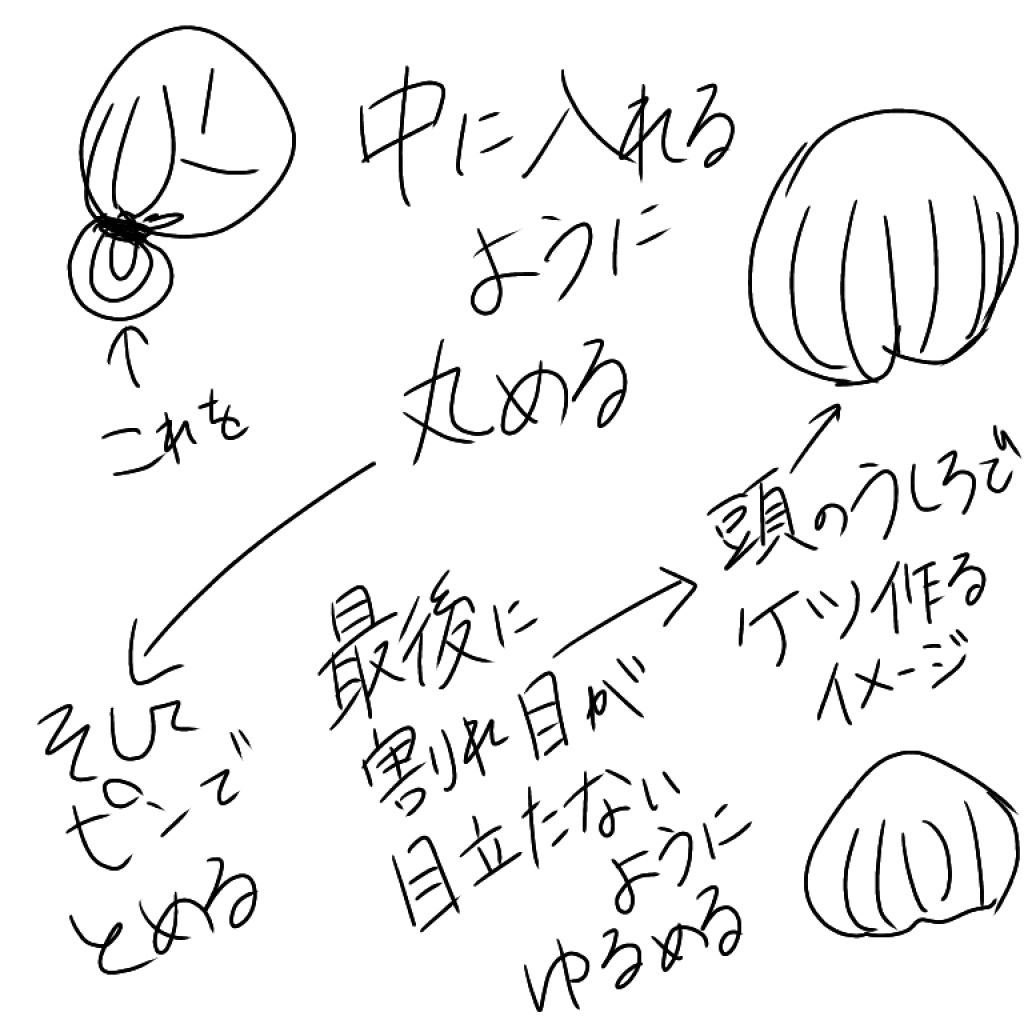 これを
中に入れる
ように
丸める
そして
ピンで
とめる
最後に
割れ目が
目立たない
ように
ゆるめる
頭のうしろで
ケツ作る
イメージ